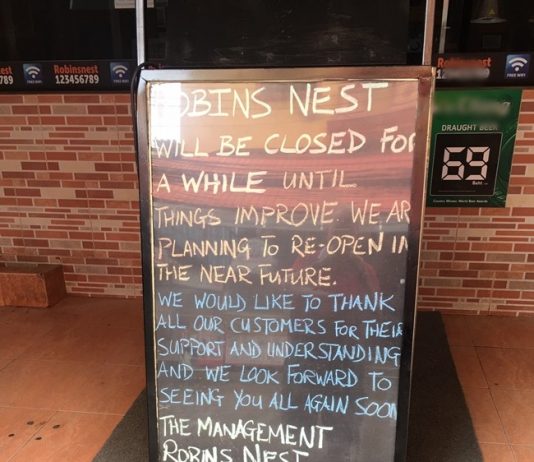 ROBINS NEST
WILL BE CLOSED FOR
A WHILE UNTIL
THINGS IMPROVE. WE AR
PLANNING TO RE-OPEN IN
THE NEAR FUTURE.
WE WOULD LIKE TO THANK
ALL OUR CUSTOMERS FOR THEIR
SUPPORT AND UNDERSTANDING
AND WE LOOK FORWARD TO
SEEING YOU ALL AGAIN SOON
THE MANAGEMENT
ROBINS NEST
est
789
FREE WIFI
Robinsnest
123456789
FREE WIFI
Robinsnest
12
FREE WIFI
DRAUGHT BEER
69
Baht